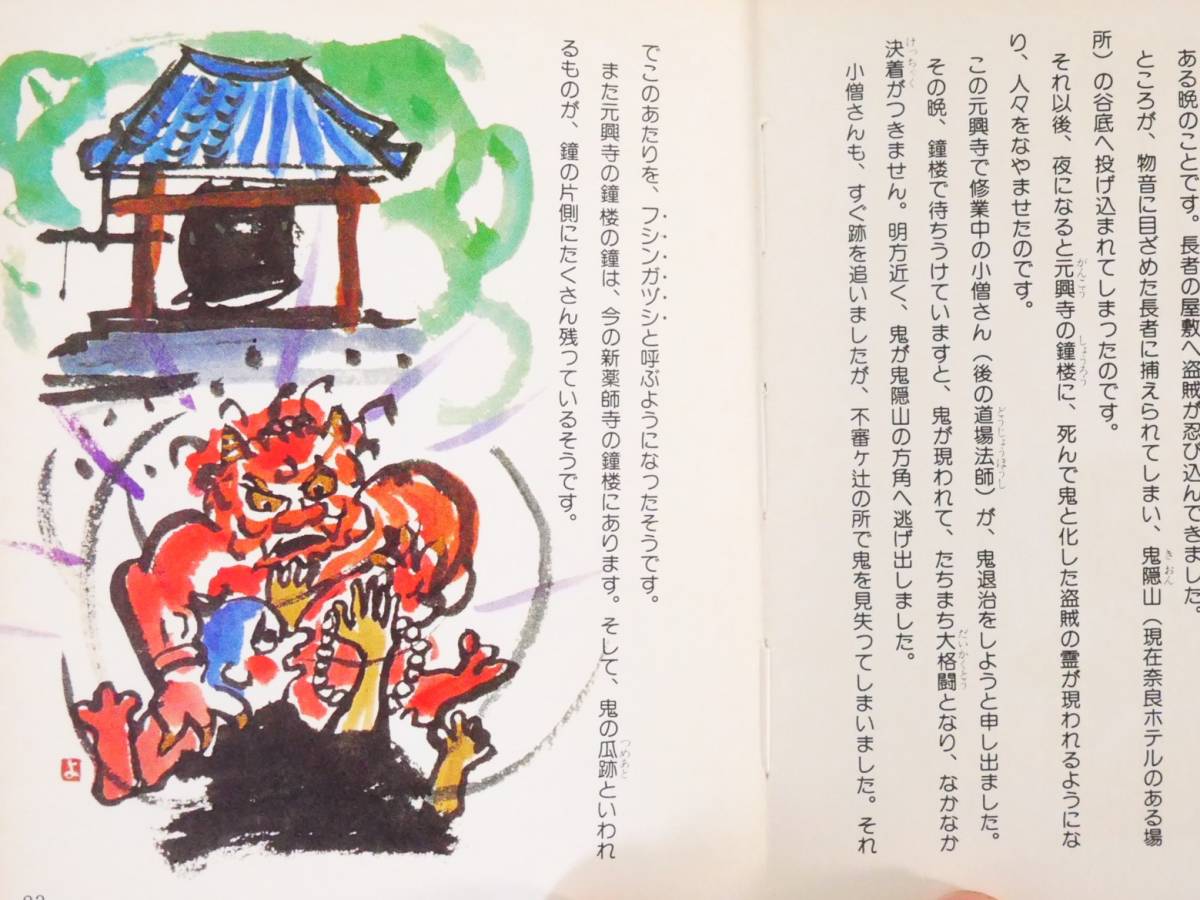 ある晩のことです。長者の屋敷へ盗賊が忍び込んできました。
ところが、物音に目ざめた長者に捕えられてしまい、鬼隠山（現在奈良ホテルのある場
所）の谷底へ投げ込まれてしまったのです。
それ以後、夜になると元興寺の鐘楼に、死んで鬼と化した盗賊の霊が現われるようにな
り、人々をなやませたのです。
この元興寺で修業中の小僧さん（後の道場法師）が、鬼退治をしようと申し出ました。
その晩、鐘楼で待ちうけていますと、鬼が現われて、たちまち大格闘となり、なかなか
決着がつきません。明方近く、鬼が鬼隠山の方角へ逃げ出しました。
小僧さんも、すぐ跡を追いましたが、不審ヶ辻の所で鬼を見失ってしまいました。それ
でこのあたりを、フシンガヅシと呼ぶようになったそうです。
また元興寺の鐘楼の鐘は、今の新薬師寺の鐘楼にあります。そして、鬼の瓜跡といわれ
るものが、鐘の片側にたくさん残っているそうです。
よ